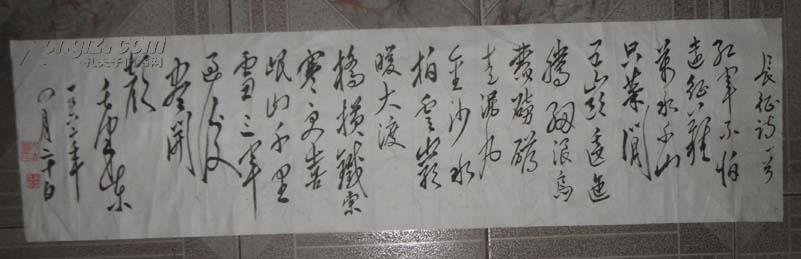 長征诗一首
紅軍不怕
遠征難
萬水千山
只等閒
五岭逶迤
騰細浪烏
蒙磅礴
走泥丸
金沙水
拍雲崖
暖大渡
橋横鐵索
寒更喜
岷山千里
雪三軍
過後
盡開
顏
毛澤東
一九六二年
四月二十日